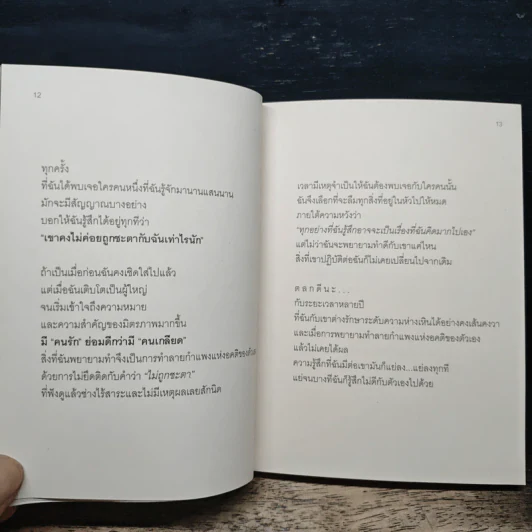 12
ทุกครั้ง
ที่ฉันได้พบเจอใครคนหนึ่งที่ฉันรู้จักมานานแสนนาน
มักจะมีสัญญาณบางอย่าง
บอกให้ฉันรู้สึกได้อยู่ทุกทีว่า
"เขาคงไม่ค่อยถูกชะตากับฉันเท่าไรนัก"
ถ้าเป็นเมื่อก่อนฉันคงเชิดใส่ไปแล้ว
แต่เมื่อฉันเติบโตเป็นผู้ใหญ่
จนเริ่มเข้าใจถึงความหมาย
และความสำคัญของมิตรภาพมากขึ้น
มี "คนรัก" ย่อมดีกว่ามี "คนเกลียด"
สิ่งที่ฉันพยายามทำจึงเป็นการทำลายกำแพงแห่งอคติของตัวเอง
ด้วยการไม่ยึดติดกับคำว่า "ไม่ถูกชะตา"
ที่ฟังดูแล้วช่างไร้สาระและไม่มีเหตุผลเลยสักนิด
13
เวลามีเหตุจำเป็นให้ฉันต้องพบเจอกับใครคนนั้น
ฉันจึงเลือกที่จะลืมทุกสิ่งที่อยู่ในหัวไปให้หมด
ภายใต้ความหวังว่า
"ทุกอย่างที่ฉันรู้สึกอาจจะเป็นเรื่องที่ฉันคิดมากไปเอง"
แต่ไม่ว่าฉันจะพยายามทำดีกับเขาแค่ไหน
สิ่งที่เขาปฏิบัติต่อฉันก็ไม่เคยเปลี่ยนไปจากเดิม
ตลกดีนะ...
กับระยะเวลาหลายปี
ที่ฉันกับเขาต่างรักษาระดับความห่างเหินได้อย่างคงเส้นคงวา
และเมื่อการพยายามทำลายกำแพงแห่งอคติของตัวเอง
แล้วไม่เคยได้ผล
ความรู้สึกที่ฉันมีต่อเขามันก็แย่ลง...แย่ลงทุกที
แย่จนบางทีฉันก็รู้สึกไม่ดีกับตัวเองไปด้วย